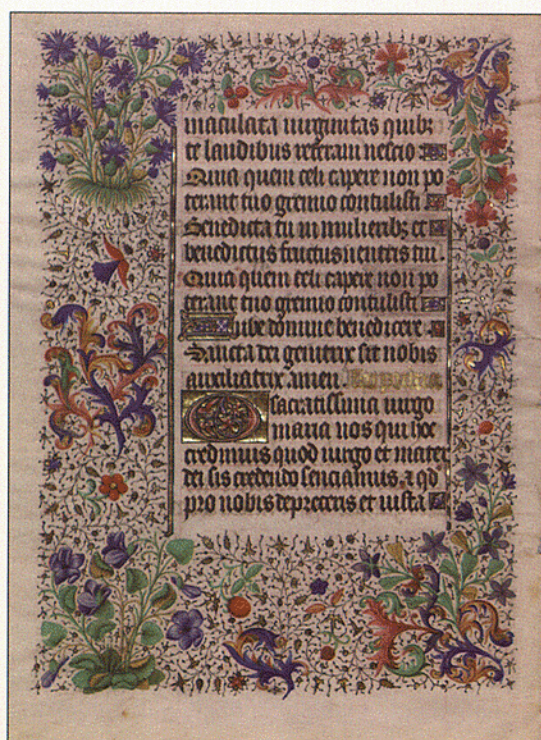 maculata virginitas quibz
te laudibus referam nescio
Quia quem celi capere non po
terant tuo gremio contulisti
Benedicta tu in mulieribz et
benedictus fructus ventris tui.
Quia quem celi capere non po
terant tuo gremio contulisti
Iube domine benedicere
Sancta dei genitrix sit nobis
auxiliatrix amen
O sacratissima virgo
maria nos qui hoc
credimus quod virgo et mater
dei sis credendo senciamus. et qd
pro nobis depreceris et iusta